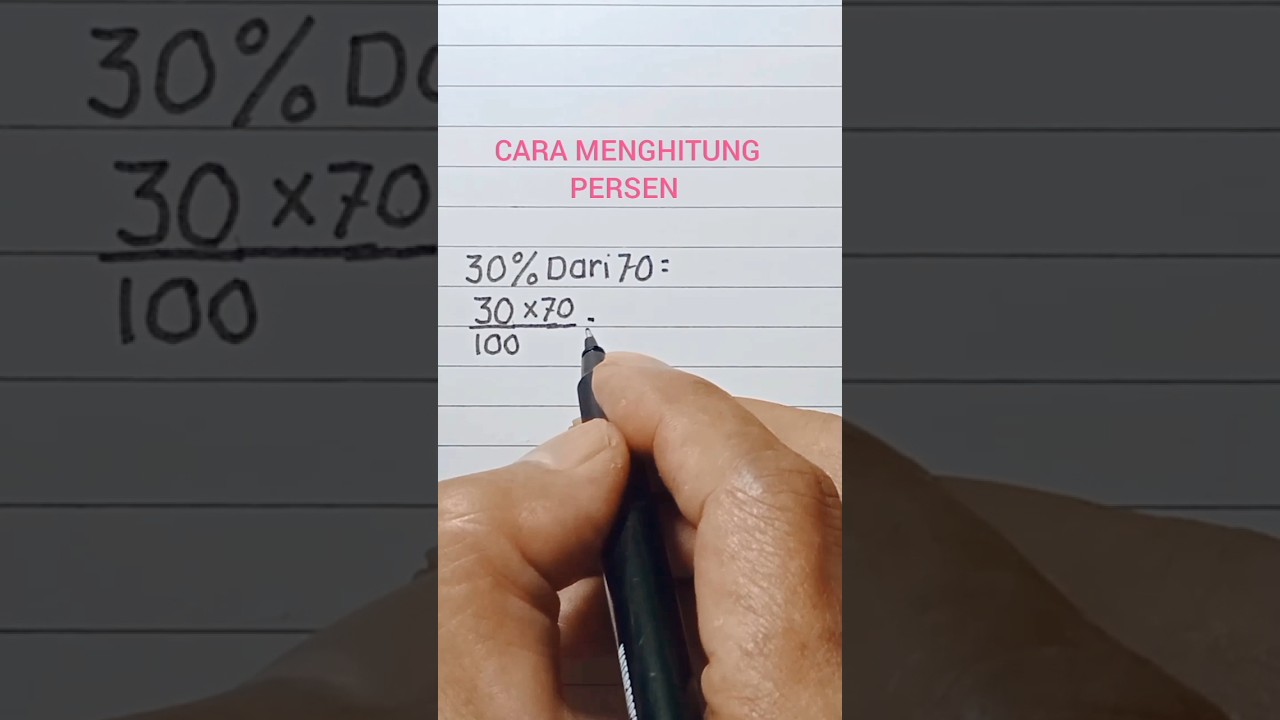 CARA MENGHITUNG
PERSEN
30% Dari 70 =
30 x 70
100